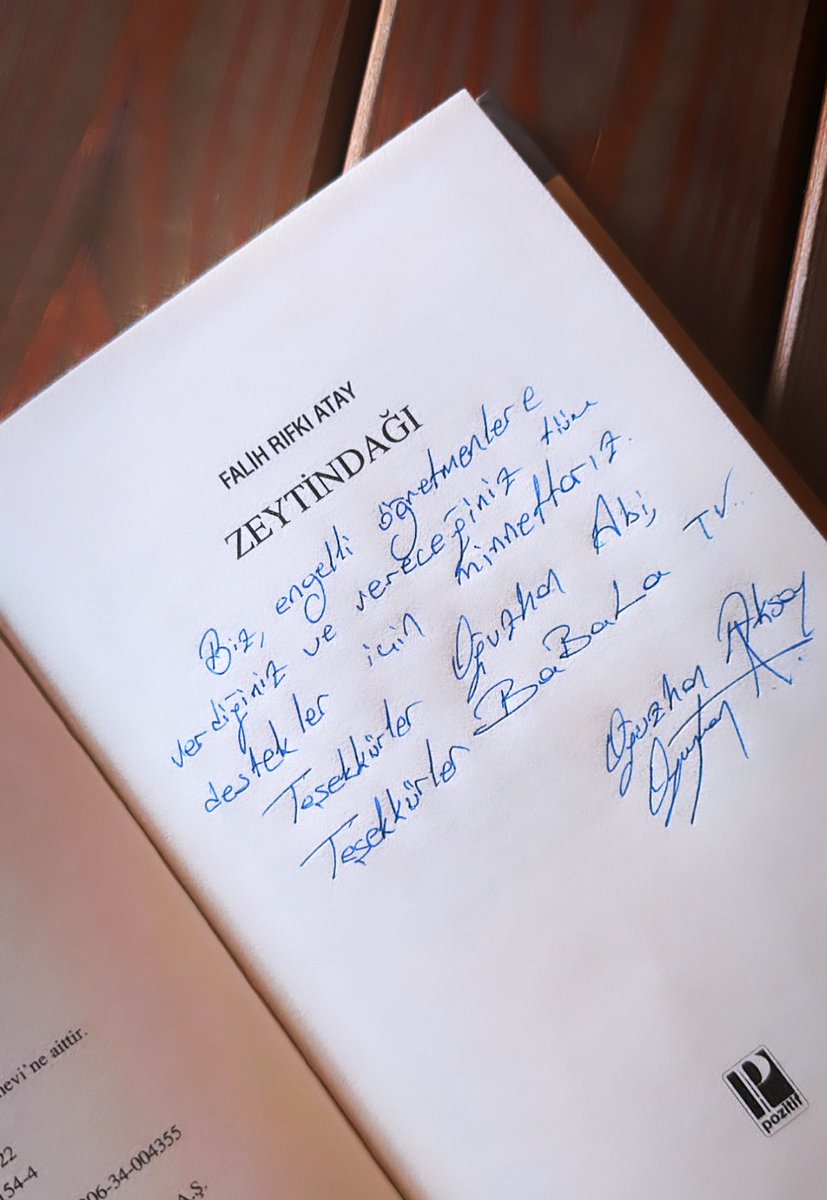 FALİH RIFKI ATAY
ZEYTİNDAĞI
Biz, engelli öğretmenlere
verdiğiniz ve vereceğiniz tüm
destekler için minnettarız.
Teşekkürler Oğuzhan Abi,
Teşekkürler BaBaLa TV...
Oğuzhan Aksoy
pozitif
nevi'ne aittir.
22
154-4
006-34-004355
A.Ş.